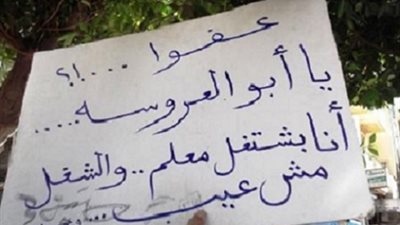 عفوا ....!؟
يا أبو العروسه.....
أنا بشتغل معلم..والشغل
مش عيب...